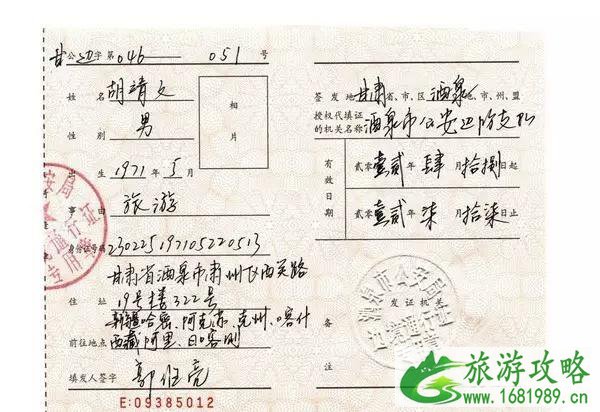 甘公边字第046 051号
姓名 胡靖文
性别 男
相片
出生 1971年5月
事由 旅游
身份证号码 230225197105220513
甘肃省酒泉市肃州区西关路
住址 19号楼322号
新疆哈密、阿克苏、克州、喀什
前往地点 西藏阿里、日喀则
填发人签字
E:09385012
签发地 甘肃省、市、区 酒泉地、市、州、盟
授权代填证
的机关名称 酒泉市公安边防支队
有效日期
贰零壹贰年肆月拾捌日起
贰零壹贰年柒月拾柒日止
发证机关
备
注
酒泉市公安局
通行证
专用章
旅游攻略
www.1681989.cn